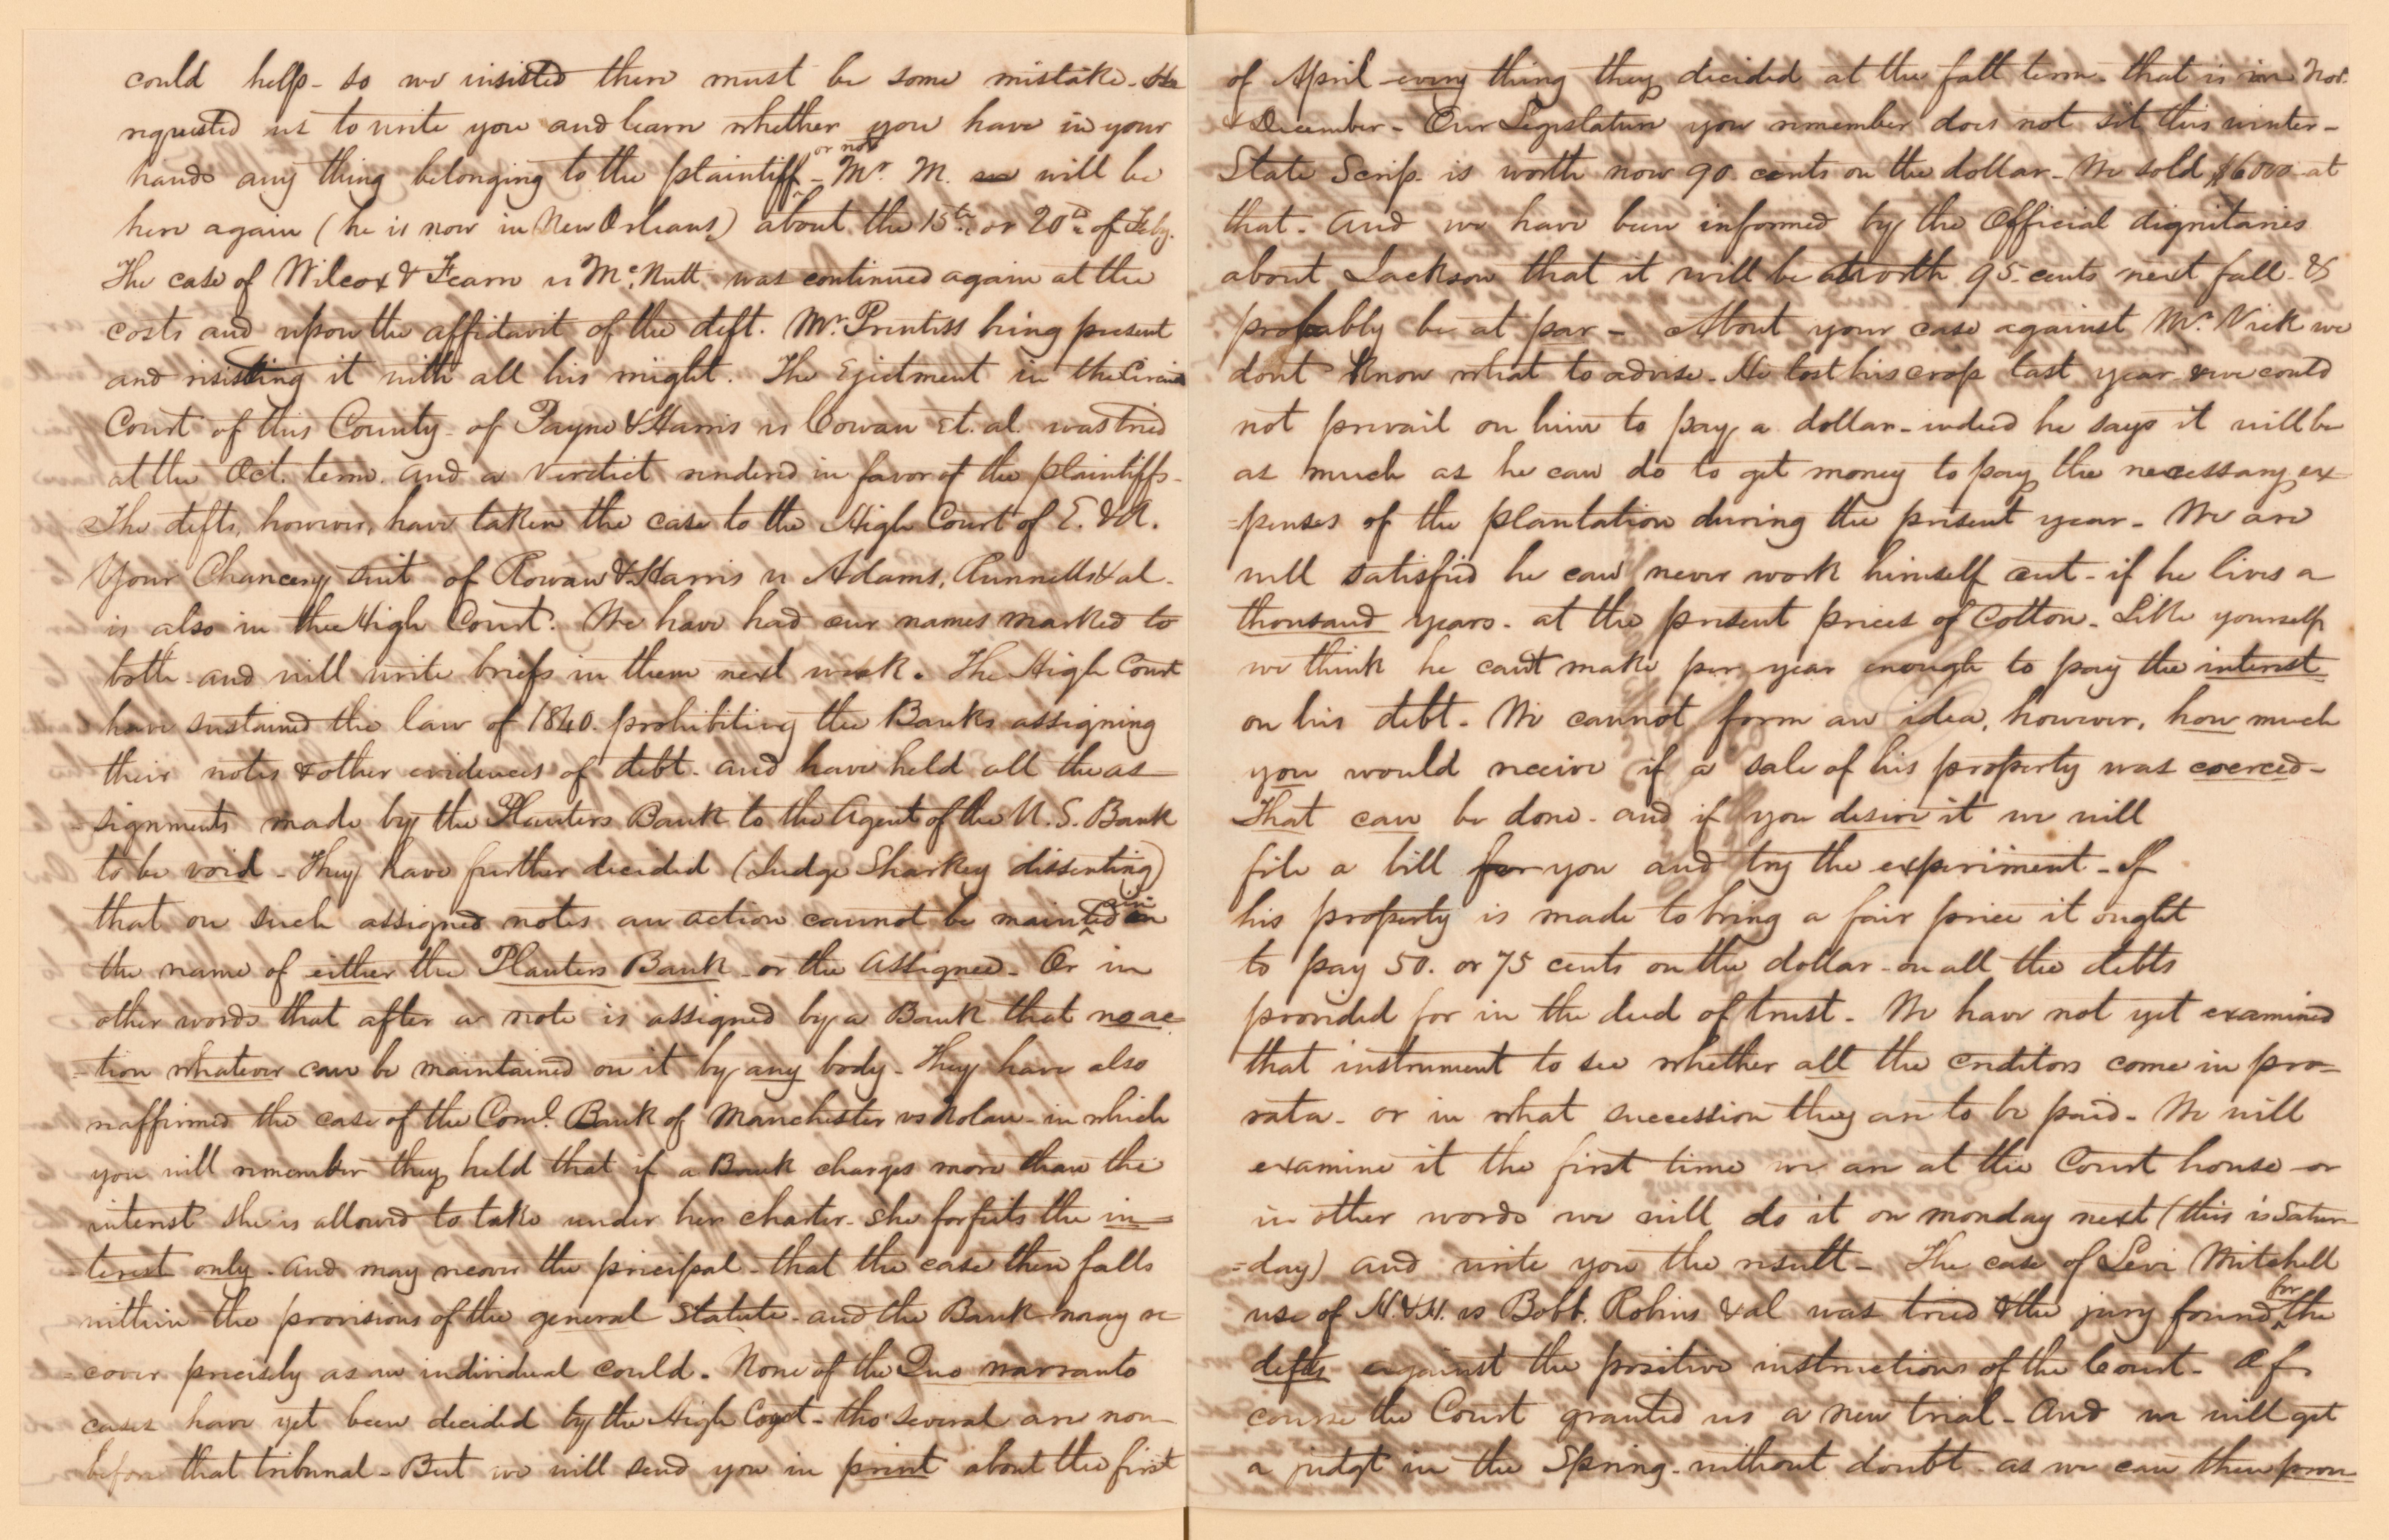 could help - so we insisted there must be some mistake - He
requested us to write you and learn whether you have in your
hands any thing belonging to the plaintiff or not - Mr. M. will be
here again (he is now in New Orleans) about the 15th or 20th of Feby.
The case of Wilcox & Fearn vs McNutt was continued again at the
costs and upon the affidavit of the deft. Mr. Prentiss being present
and resisting it with all his might. The Ejectment in the Circuit
Court of this County - of Payne & Harris vs Cowan et. al. was tried
at the Oct. term. and a verdict rendered in favor of the plaintiffs -
The defts, however, have taken the case to the High Court of E. & A.
Your Chancery suit of Rowan & Harris vs Adams, Runnells & al -
is also in the High Court. We have had our names marked to
both - and will write briefs in them next week. The High Court
have sustained the law of 1840. prohibiting the Banks assigning
their notes & other evidences of debt - and have held all the as-
-signments made by the Planters Bank to the Agent of the U.S. Bank
to be void - They have further decided (Judge Sharkey dissenting)
that on such assigned notes an action cannot be maintained in
the name of either the Planters Bank - or the Assignee - Or in
other words that after a note is assigned by a Bank that no ac
=tion whatever can be maintained on it by any body - They have also
reaffirmed the case of the Coml. Bank of Manchester vs Nolan - in which
you will remember they held that if a Bank charges more than the
interest she is allowed to take under her charter - she forfeits the in=
-terest only - and may recover the principal - that the case then falls
within the provisions of the general Statute - and the Bank may re-
-cover precisely as an individual could. None of the Quo warranto
cases have yet been decided by the High Court - tho' several are now
before that tribunal - But we will send you in print about the first
of April every thing they decided at the fall term - that is in Nov.
& December - Our Legislature you remember does not sit this winter -
State Scrip. is worth now 90 cents on the dollar - We sold $6000 at
that - And we have been informed by the Official dignitaries
about Jackson that it will be worth 95 cents next fall - &
probably be at par - About your case against Mr. Vick we
dont know what to advise - He lost his crop last year & we could
not prevail on him to pay a dollar - indeed he says it will be
as much as he can do to get money to pay the necessary ex
=penses of the plantation during the present year - We are
well satisfied he can never work himself out - if he lives a
thousand years - at the present prices of Cotton - Like yourself
we think he cant make per year enough to pay the interest
on his debt - We cannot form an idea, however, how much
you would receive if a sale of his property was coerced -
That can be done - and if you desire it we will
file a bill for you and try the experiment - If
his property is made to bring a fair price it ought
to pay 50. or 75 cents on the dollar - on all the debts
provided for in the deed of trust - We have not yet examined
that instrument to see whether all the creditors come in pro=
rata - or in what succession they are to be paid - We will
examine it the first time we are at the Court house - or
in other words we will do it on monday next (this is Satur
=day) and write you the result - The case of Levi Mitchell
use of H. & H. vs Bobb. Robins & al was tried & the jury found for the
defts against the positive instructions of the Court - Of
course the Court granted us a new trial - And we will get
a judgt in the Spring - without doubt - as we can then prove